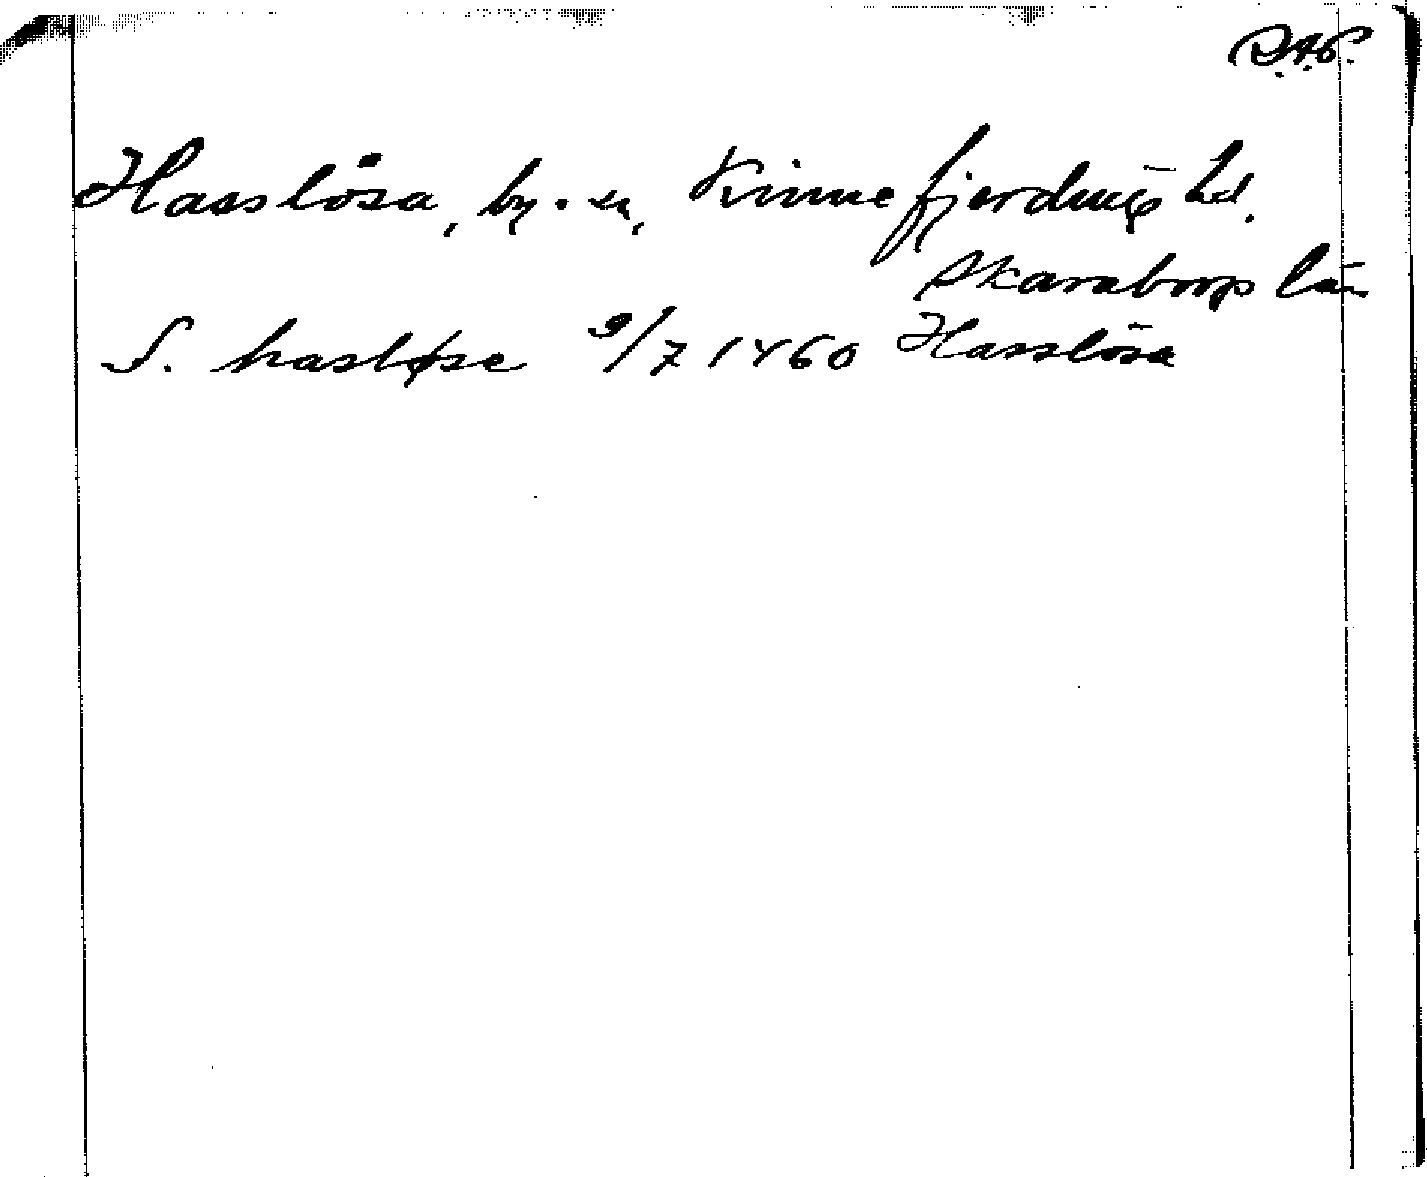 D.A.P.
Hasslösa, by. sn, Kinnefjerdings hd.
Skaraborgs län
S. hasløse 9/7 1460 Hasslösa